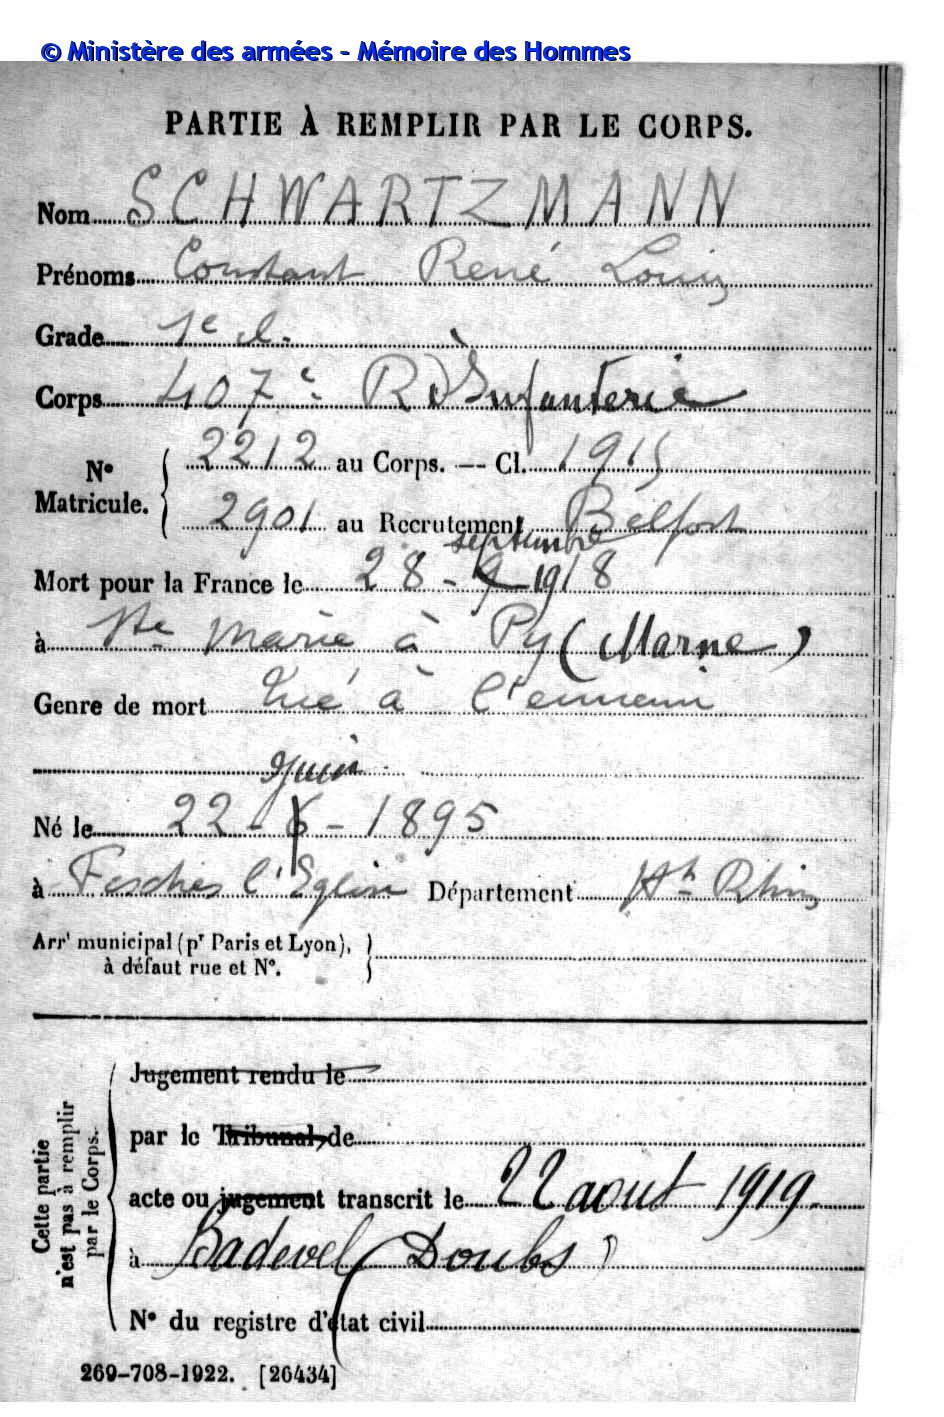 © Ministère des armées - Mémoire des Hommes
PARTIE À REMPLIR PAR LE CORPS.
Nom SCHWARTZMANN
Prénoms Constant René Louis
Grade 1e cl.
Corps 407e R d'Infanterie
N° Matricule. 2212 au Corps. — Cl. 1915
2901 au Recrutement Belfort
septembre
Mort pour la France le 28-9-1918
à Ste Marie à Py (Marne)
Genre de mort Tué à l'ennemi
Juin
Né le 22-6-1895
à Fesches l'Eglise Département Ht Rhin
Arrt municipal (pr Paris et Lyon),
à défaut rue et N°.
Cette partie n'est pas à remplir par le Corps.
Jugement rendu le
par le Tribunal, de
acte ou jugement transcrit le 22 août 1919.
à Badevel (Doubs)
N° du registre d'état civil
269-708-1922. [26434]